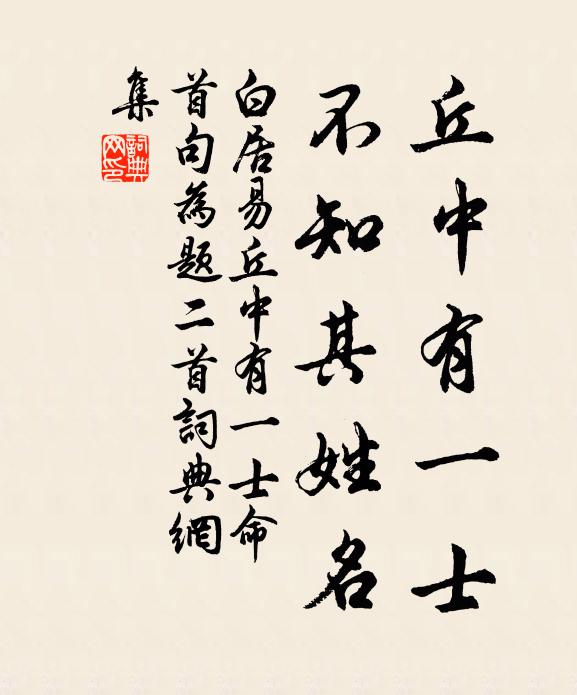 丘中有一士
不知其姓名
白居易丘中有一士命
首句為題二首詞典網
集
詞典
網印